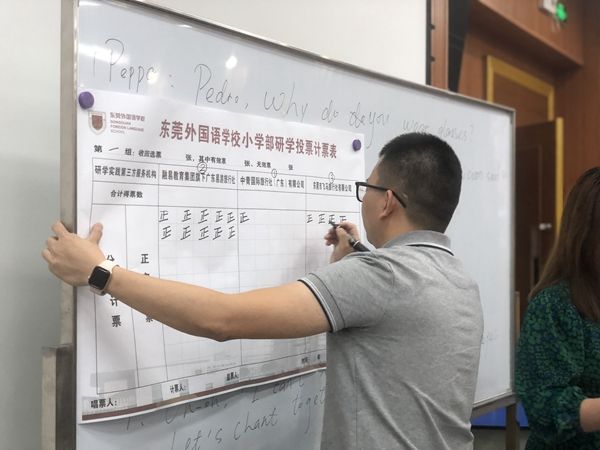 Peppa: Pedro, Why do you wear glasses?
东莞外国语学校
DONGGUAN
FOREIGN LANGUAGE
SCHOOL
东莞外国语学校小学部研学投票计票表
第一组：收回选票 张，其中有效票 张、无效票 张。
② ① ③
研学实践第三方服务机构 融易教育集团旗下广东易游旅行社 中青国际旅行社（广东）有限公司 东莞市飞马旅行社有限公司
合计得票数
正正正正正 正 正正正正
正正正正正
计票
正
票
唱票人： 计票人： 监票人： 时间： 年
Uh-oh, I can't
Let's chant together